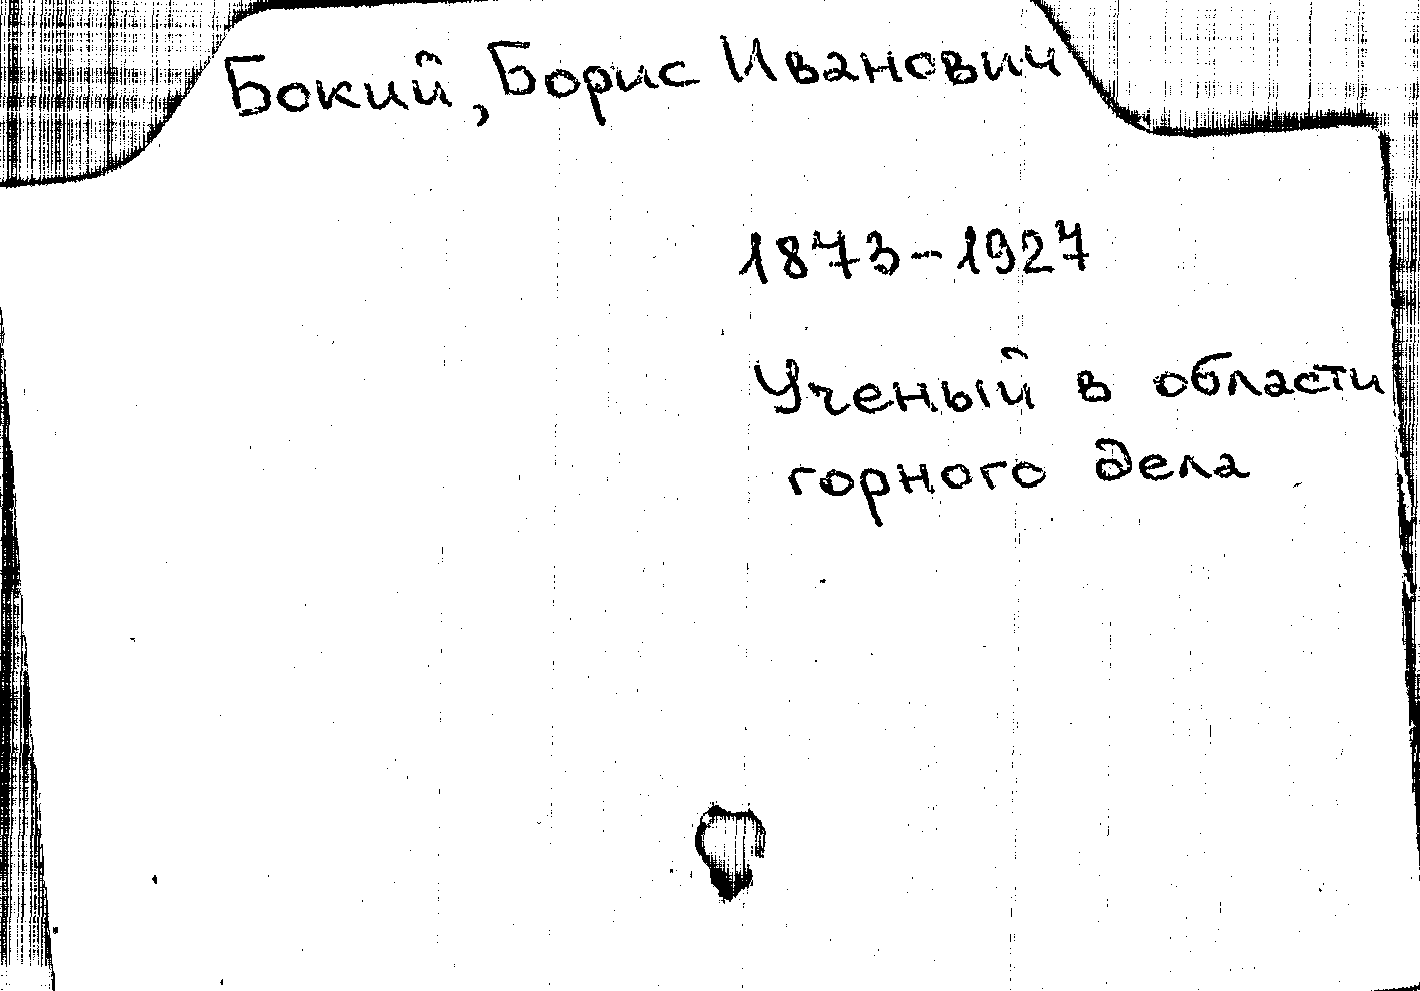 Бокий, Борис Иванович
1873-1927
Ученый в области
горного дела